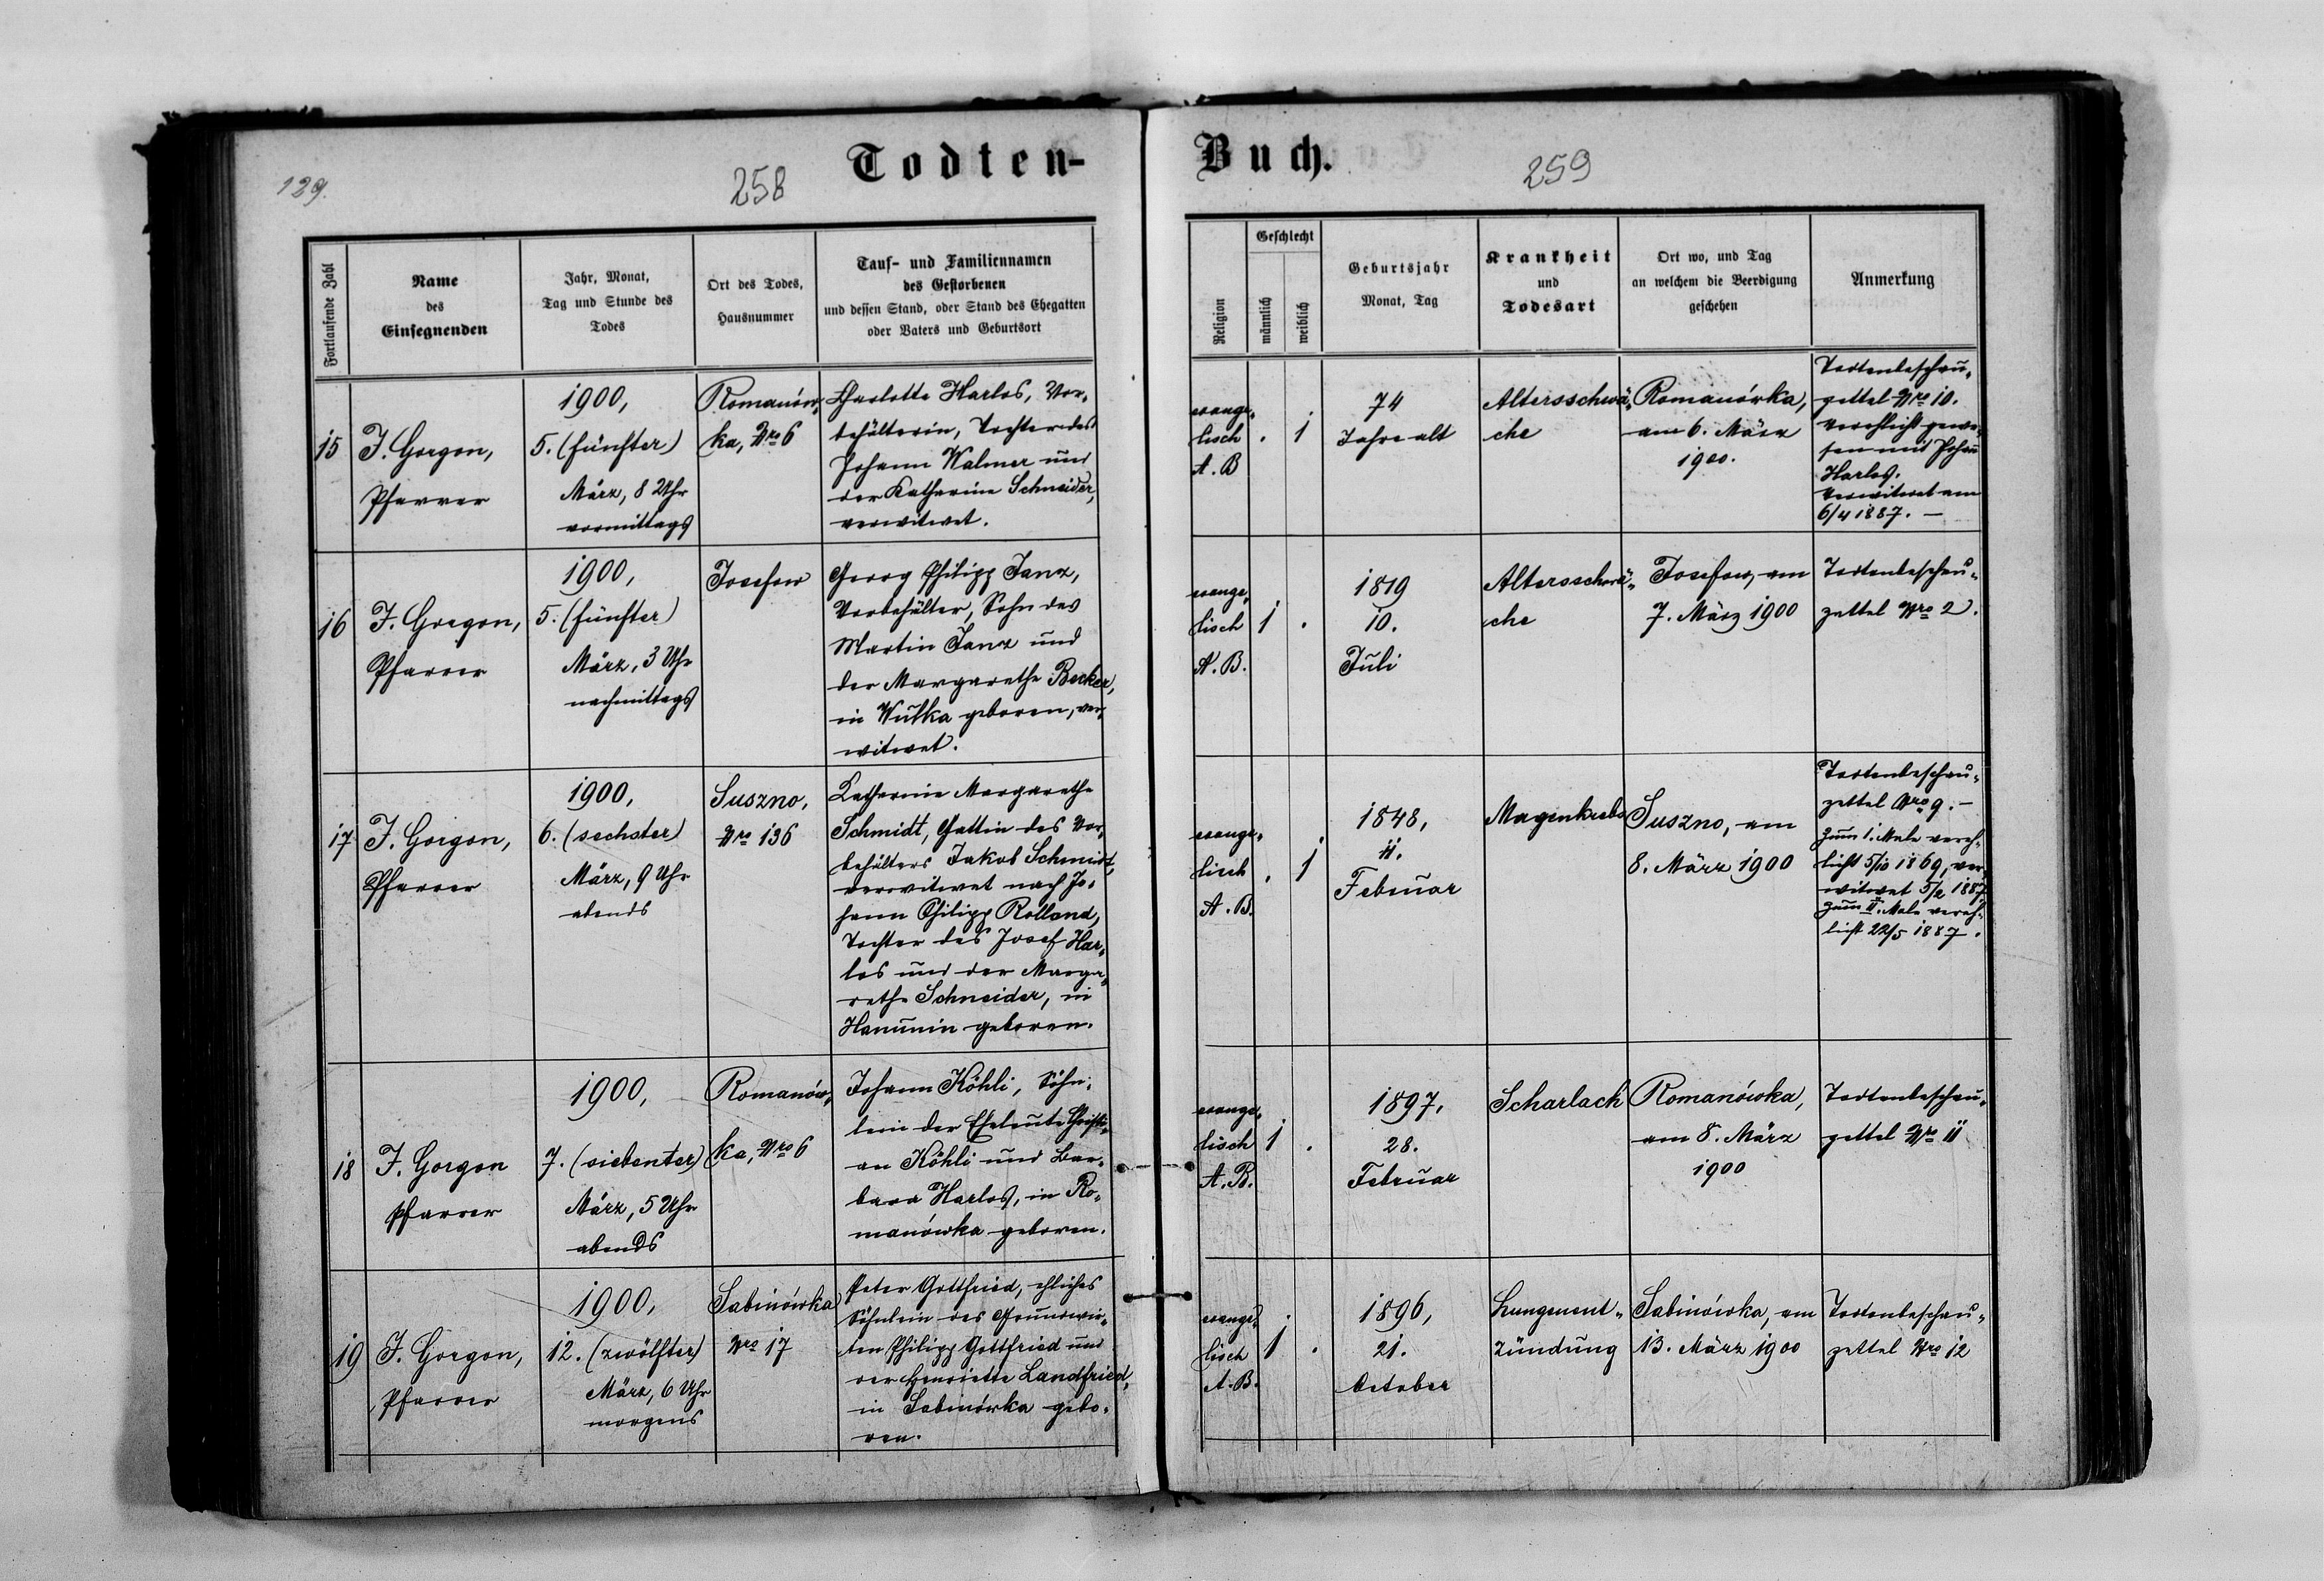 129.
258
Todten-
Buch.
259
Fortlaufende Zahl
Name
des
Einsegnenden
Jahr, Monat,
Tag und Stunde des
Todes
Ort des Todes,
Hausnummer
Tauf- und Familiennamen
des Gestorbenen
und dessen Stand, oder Stand des Ehegatten
oder Vaters und Geburtsort
Religion
Geschlecht
männlich
weiblich
Geburtsjahr
Monat, Tag
Krankheit
und
Todesart
Ort wo, und Tag
an welchem die Beerdigung
geschehen
Anmerkung
15
J. Gorgon,
Pfarrer
1900,
5. (fünfter)
März, 8 Uhr
vormittags
Romanów-
ka, Nro 6
Charlotte Harlos, Vor-
behälterin, Tochter des
Johann Walmer und
der Katharina Schneider,
verwitwet.
evange-
lisch
A. B
. 1
74
Jahre alt
Altersschwä-
che
Romanówka,
am 6. März
1900.
Todtenbeschau-
zettel Nro 10.
Verehlicht gewe-
sen mit Johann
Harlos.
Verwitwet am
6/4 1887. —
16
J. Gorgon,
Pfarrer
1900,
5. (fünfter)
März, 3 Uhr
nachmittags
Josefow
Georg Philipp Janz,
Vorbehälter, Sohn des
Martin Janz und
der Margarethe Becker,
in Wulka geboren, ver-
witwet.
evange-
lisch
A. B.
1 .
1819
10.
Juli
Altersschwä-
che
Josefow, am
7. März 1900
Todtenbeschau-
zettel Nro 2.
17
J. Gorgon,
Pfarrer
1900,
6. (sechster)
März, 9 Uhr
abends
Suszno,
Nro 136
Katharina Margarethe
Schmidt, Gattin des Vor-
behälters Jakob Schmidt,
verwitwet nach Jo-
hann Philipp Rolland,
Tochter des Josef Har-
los und der Marga-
rethe Schneider, in
Hanunin geboren.
evange-
lisch
A. B.
. 1
1848,
11.
Februar
Magenkrebs
Suszno, am
8. März 1900
Todtenbeschau-
zettel Nro 9. —
Zum I. Male vereh-
licht 5/10 1869, ver-
witwet 5/2 1887,
zum II. Male vereh-
licht 22/5 1887.
18
J. Gorgon
Pfarrer
1900,
7. (siebenter)
März, 5 Uhr
abends
Romanów-
ka, Nro 6
Johann Köhli, Söhn-
lein der Eheleute Christi-
an Köhli und Bar-
bara Harlos, in Ro-
manówka geboren.
evange-
lisch
A. B.
1 .
1897,
28.
Februar
Scharlach
Romanówka,
am 8. März
1900
Todtenbeschau-
zettel Nro 11
19
J. Gorgon,
Pfarrer
1900,
12. (zwölfter)
März, 6 Uhr
morgens
Sabinówka
Nro 17
Peter Gottfried, ehliches
Söhnlein des Grundwir-
ten Philipp Gottfried und
der Henriette Landfried,
in Sabinówka gebo-
ren.
evange-
lisch
A. B.
1 .
1896,
21.
October
Lungenent-
zündung
Sabinówka, am
13. März 1900
Todtenbeschau-
zettel Nro 12